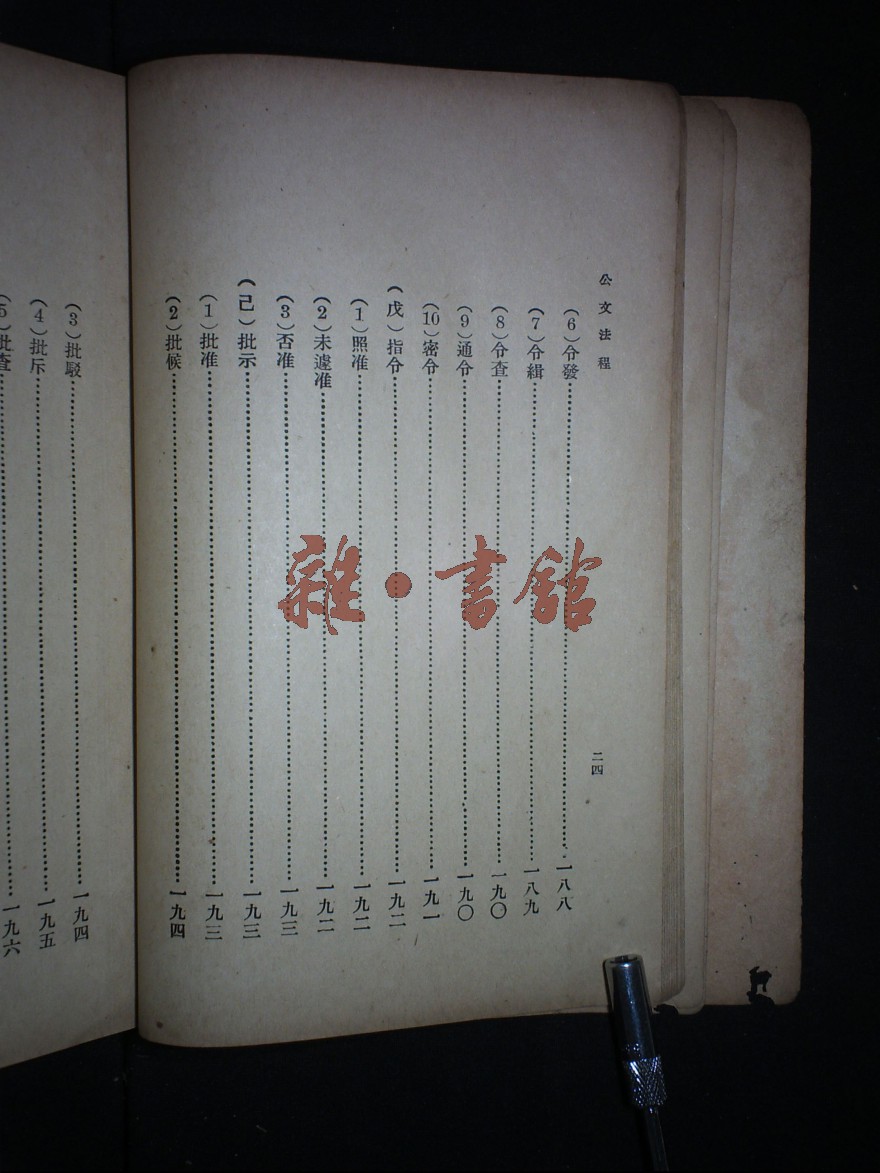 公文法程
二四
(6)令發……一八八
(7)令緝……一八九
(8)令查……一九〇
(9)通令……一九〇
(10)密令……一九一
(戊)指令……一九二
(1)照准……一九二
(2)未遽准……一九二
(3)否准……一九三
(己)批示……一九三
(1)批准……一九三
(2)批候……一九四
(3)批駁……一九四
(4)批斥……一九五
(5)批查……一九六
雜·書館